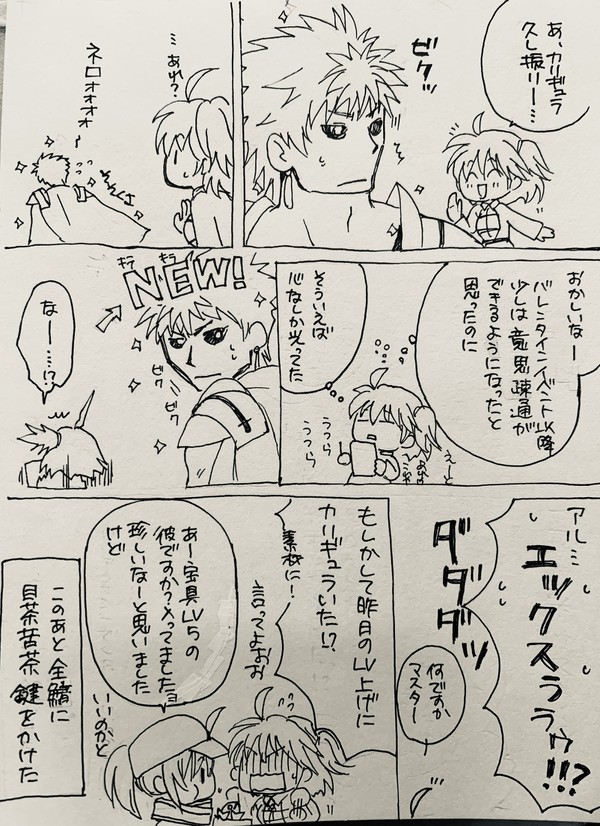 あ、カリギュラ
久し振りー…
ビクッ
…あれ?
ネロォォォォ
おかしいなー
バレンタインイベント以降
少しは意思疎通が
できるようになったと
思ったのに
そういえば
心なしか光ってた
えーと
うつら
うつら
キラ
キラ
NEW!
ビク
ビク
なー…!?
アルミ
エックスララゥ!!?
ダダダッ
何ですか
マスター
もしかして昨日のLV上げに
カリギュラいた!?
素材に!
言ってよおお
あー、宝具LV5の
彼ですか?入ってましたョ
珍しいなーと思いました
けど
いいのかと
このあと全員に
目茶苦茶鍵をかけた